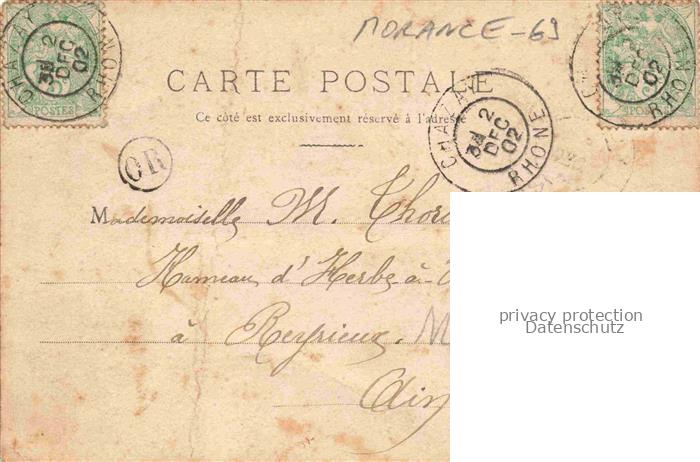 MORANCE-69
CHAZAY
3E 2
DEC
02
RHONE
POSTES
CARTE POSTALE
Ce côté est exclusivement réservé à l'adresse
CHAZAY
3E 2
DEC
02
RHONE
3E 2
DEC
02
RHONE
OR
Mademoiselle M.
Hameau d'Herbe-à-
à Reyrieux.
Ain
privacy protection
Datenschutz